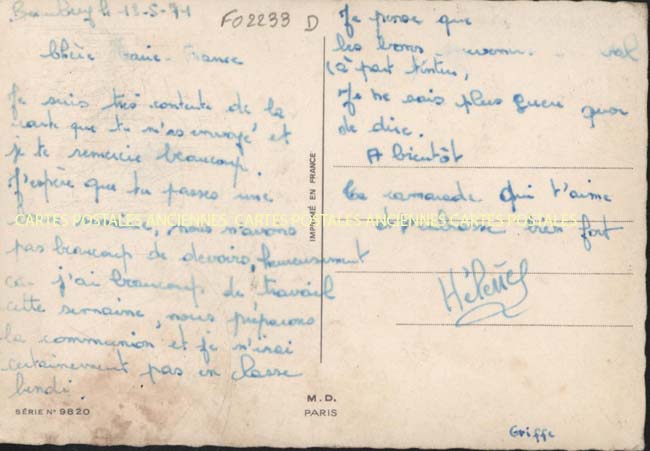 le 13-5-71
FO2233 D
Chère Marie-France
Je suis très contente de la
carte que tu m'as envoyé et
je te remercie beaucoup.
J'espère que tu passes une
nous n'avons
pas beaucoup de devoirs, heureusement
car j'ai beaucoup de travail
cette semaine, nous préparons
la communion et je n'irai
certainement pas en classe
lundi.
SÉRIE N° 9820
Je pense que
les bons
(à part
Je ne sais plus guère quoi
de dire.
A bientôt
La camarade qui t'aime
et t'embrasse bien fort
Hélène
IMPRIMÉ EN FRANCE
M.D.
PARIS
Griffe
CARTES POSTALES ANCIENNES CARTES POSTALES ANCIENNES CARTES POSTALES